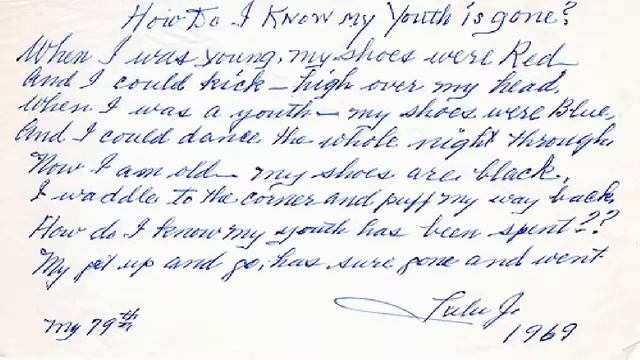 How Do I Know my Youth is gone?
When I was young, my shoes were Red
And I could kick – high over my head,
When I was a youth – my shoes were Blue,
And I could dance the whole night through,
Now I am old – my shoes are black,
I waddle to the corner and puff my way back,
How do I know my youth has been spent??
My get up and go, has sure gone and went
Lulu J.
My 79th
1969